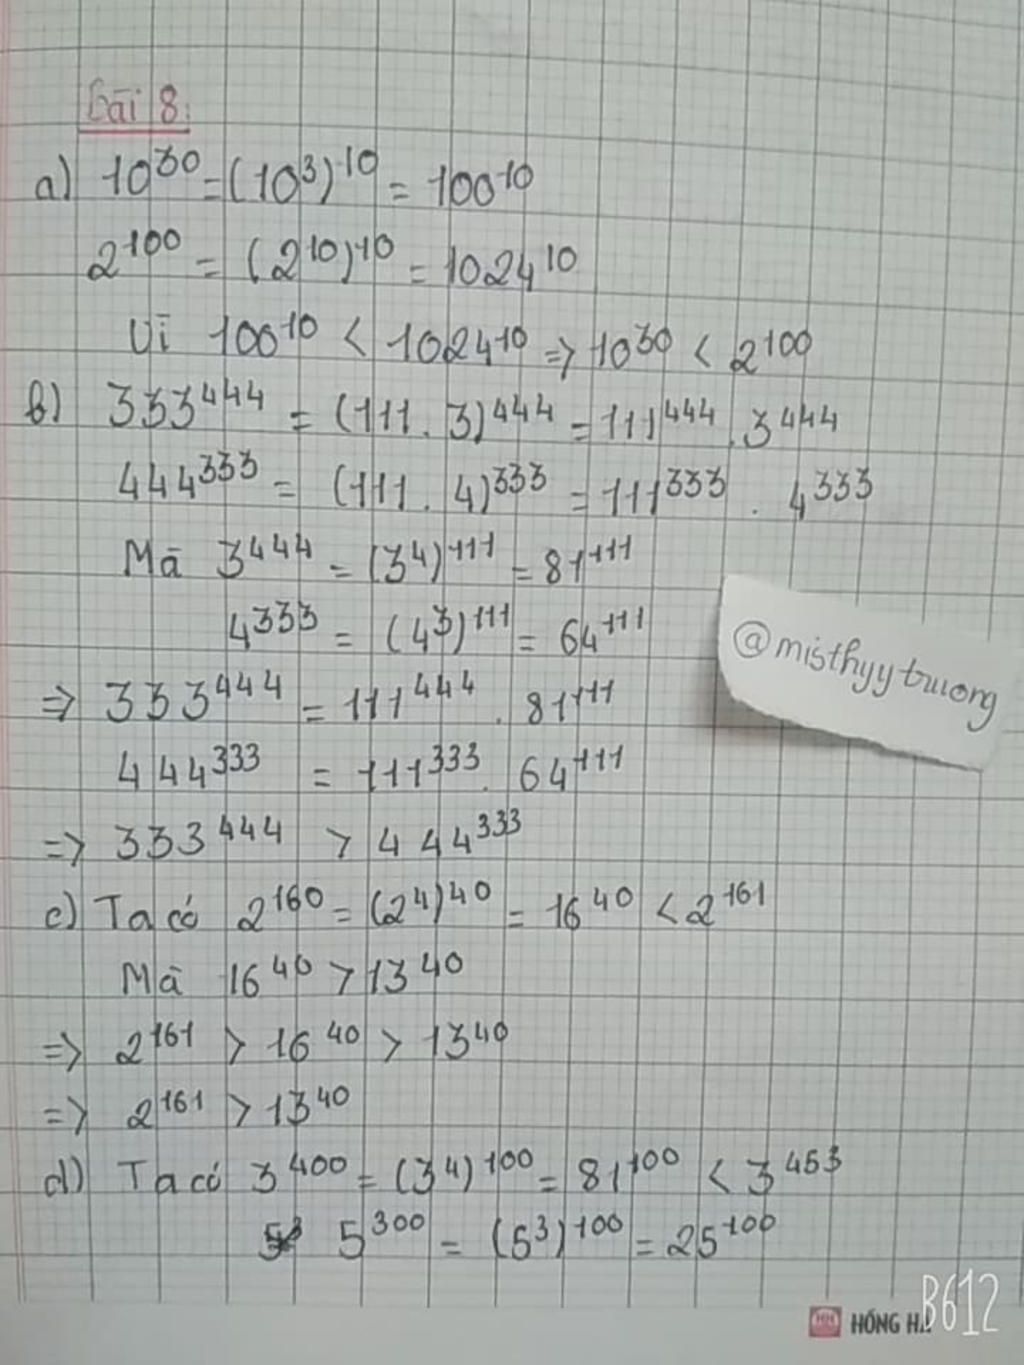 Bài 8:
a) 10³⁰ = (10³)¹⁰ = 100¹⁰
2¹⁰⁰ = (2¹⁰)¹⁰ = 1024¹⁰
Vì 100¹⁰ < 1024¹⁰ => 10³⁰ < 2¹⁰⁰
b) 333⁴⁴⁴ = (111 . 3)⁴⁴⁴ = 111⁴⁴⁴ . 3⁴⁴⁴
444³³³ = (111 . 4)³³³ = 111³³³ . 4³³³
Mà 3⁴⁴⁴ = (3⁴)¹¹¹ = 81¹¹¹
4³³³ = (4³)¹¹¹ = 64¹¹¹
@misthyytruong
=> 333⁴⁴⁴ = 111⁴⁴⁴ . 81¹¹¹
444³³³ = 111³³³ . 64¹¹¹
=> 333⁴⁴⁴ > 444³³³
c) Ta có 2¹⁶⁰ = (2⁴)⁴⁰ = 16⁴⁰ < 2¹⁶¹
Mà 16⁴⁰ > 13⁴⁰
=> 2¹⁶¹ > 16⁴⁰ > 13⁴⁰
=> 2¹⁶¹ > 13⁴⁰
d) Ta có 3⁴⁰⁰ = (3⁴)¹⁰⁰ = 81¹⁰⁰ < 3⁴⁵³
5³⁰⁰ = (5³)¹⁰⁰ = 25¹⁰⁰
HỒNG HÀ
B612